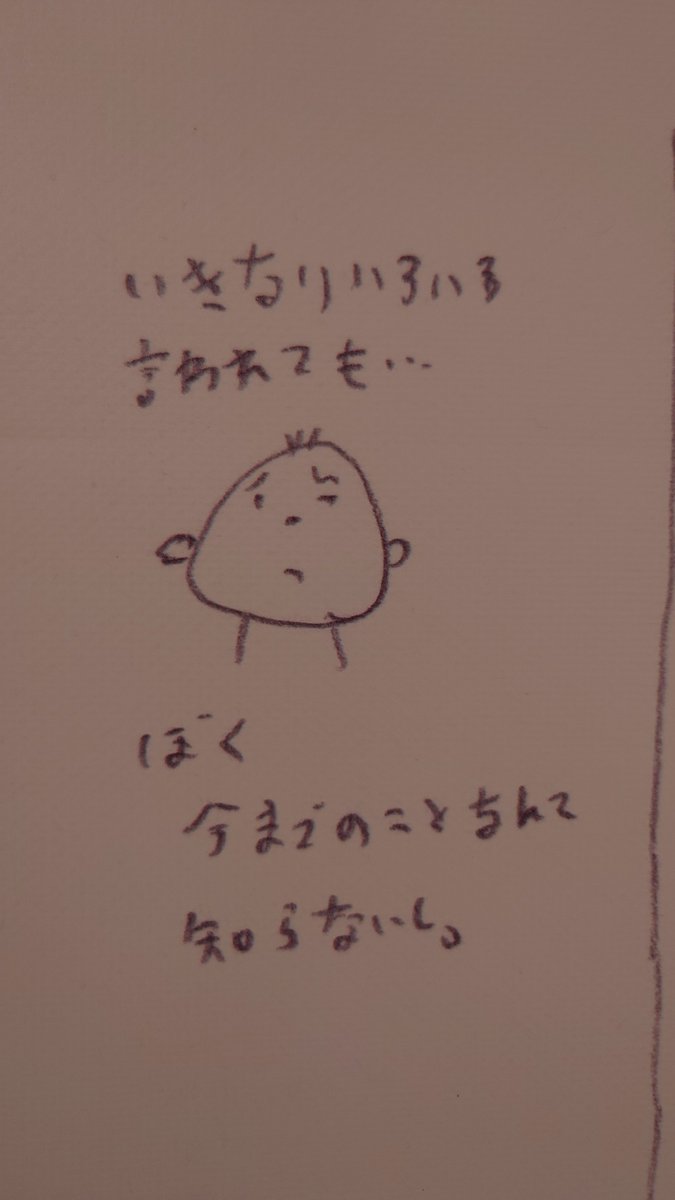 いきなりいろいろ
言われても…
ぼく
今までのことなんて
知らないし。